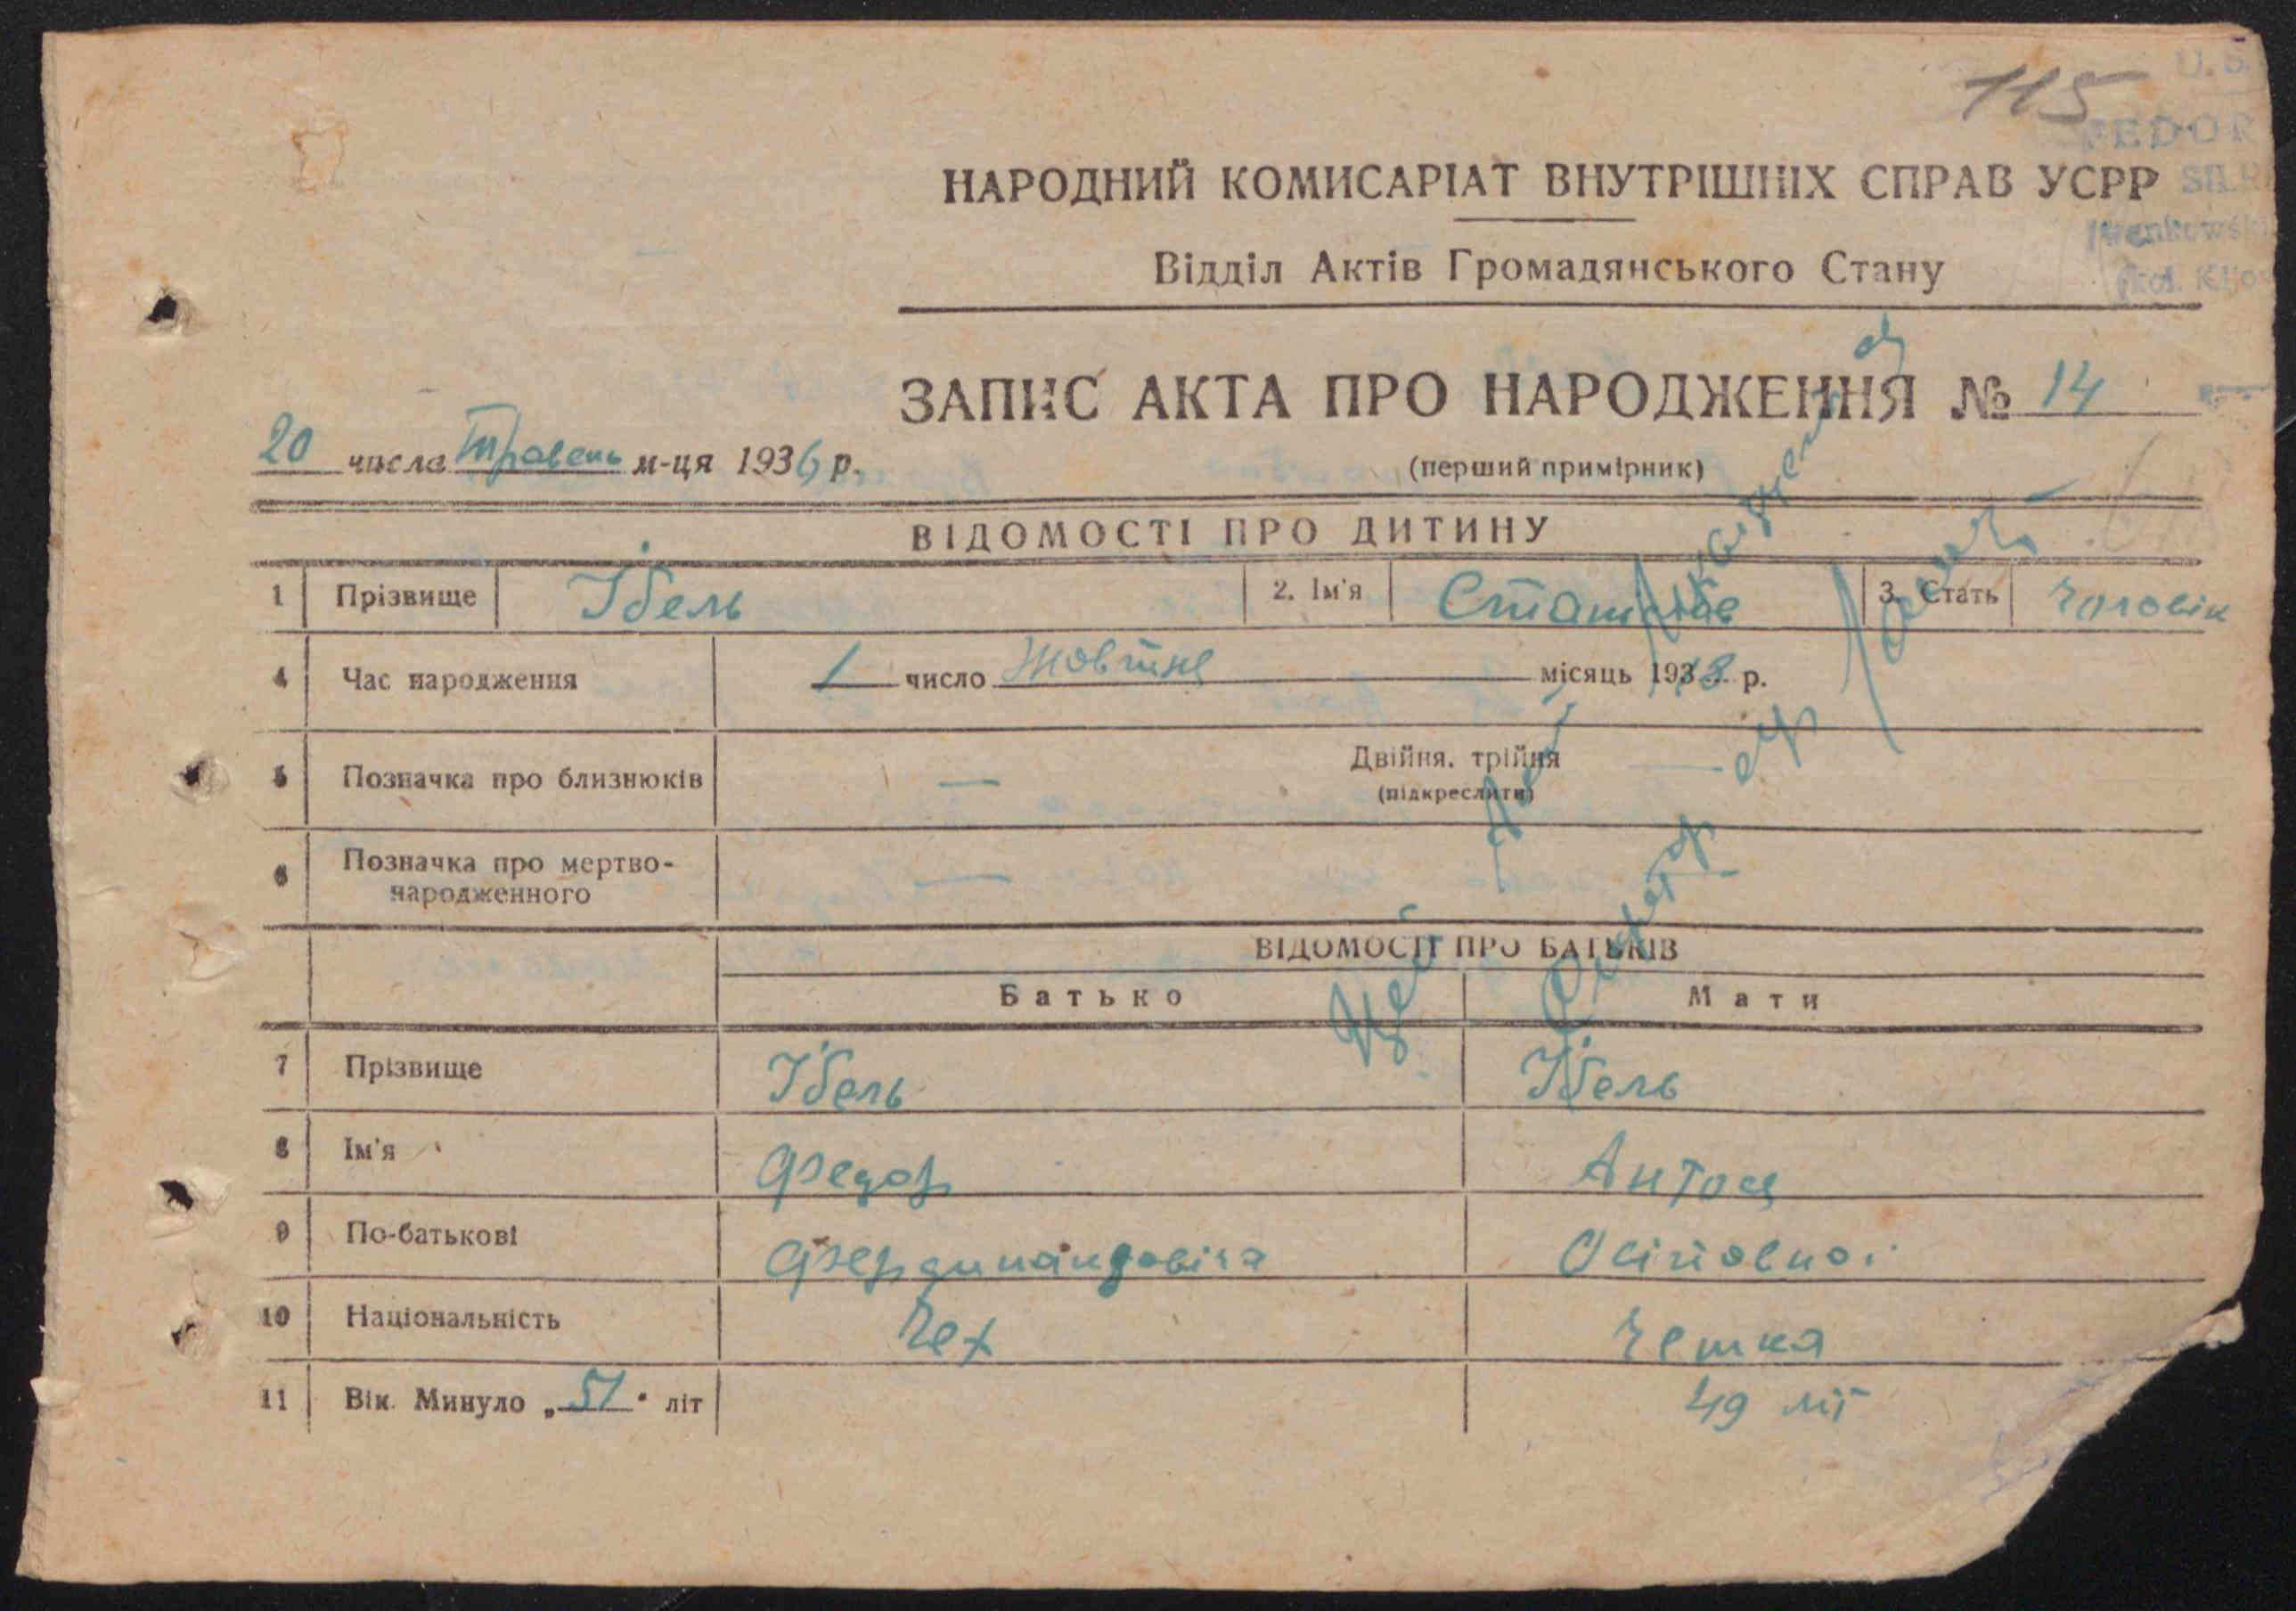 115
U.S.
FEDOR
SILR
НАРОДНИЙ КОМИСАРІАТ ВНУТРІШНІХ СПРАВ УСРР
Відділ Актів Громадянського Стану
ЗАПИС АКТА ПРО НАРОДЖЕННЯ № 14
20 числа Травень м-ця 1936 р.
(перший примірник)
ВІДОМОСТІ ПРО ДИТИНУ
1 Прізвище Ібель 2. Ім'я Станіслав 3. Стать чоловік
4 Час народження 1 число Жовтня місяць 1913 р.
5 Позначка про близнюків — Двійня, трійня —
(підкреслити)
6 Позначка про мертво-
народженного —
ВІДОМОСТІ ПРО БАТЬКІВ
Батько Мати
7 Прізвище Ібель Ібель
8 Ім'я Федор Антося
9 По-батькові Фердинандовіча Осіповной
10 Національність Чех Чешка
11 Вік. Минуло „51" літ 49 літ